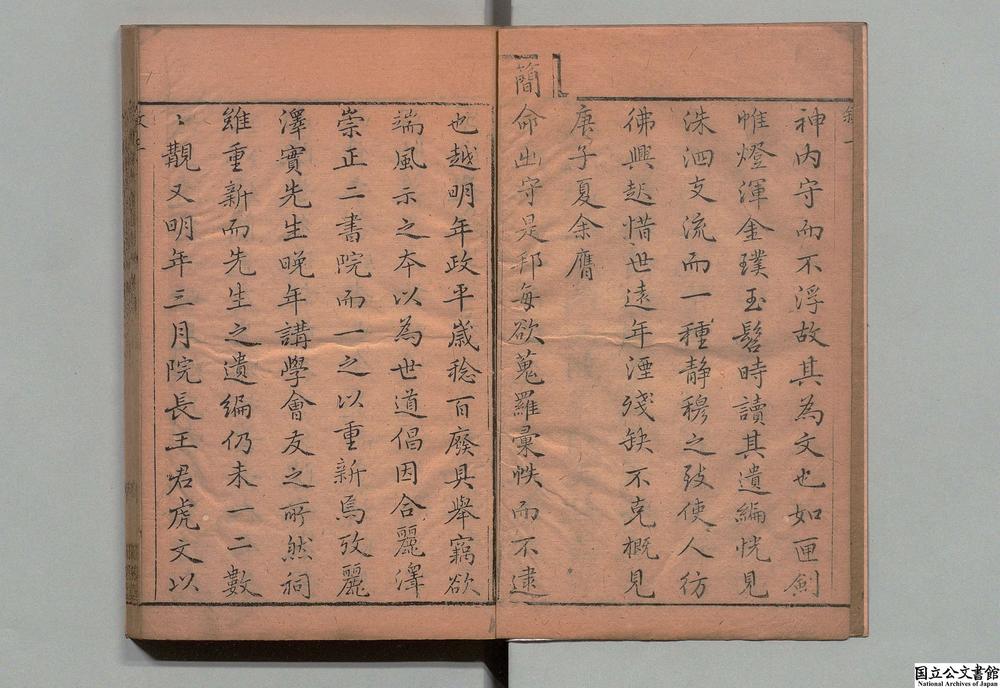 神內守而不浮故其為文也如匣劍
帷燈渾金璞玉髫時讀其遺編恍見
洙泗支流而一種靜穆之致使人彷
彿興起惜世遠年湮殘缺不克概見
庚子夏余膺
簡命出守是邦每欲蒐羅彙帙而不逮
也越明年政平歲稔百廢具舉竊欲
端風示之本以為世道倡因合麗澤
崇正二書院而一之以重新焉攷麗
澤實先生晚年講學會友之所然祠
雖重新而先生之遺編仍未一二數
〻覯又明年三月院長王君虎文以
国立公文書館
National Archives of Japan